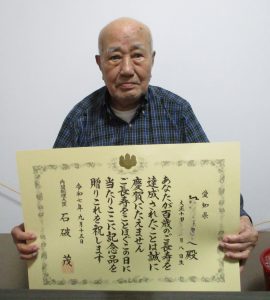 愛知県
殿
あなたが百歳のご長寿を
達成されたことは誠に
慶賀にたえません
ご長寿をことほぎこの日に
当たりここに記念品を
贈りこれを祝します
令和七年九月十五日
内閣総理大臣 石破 茂